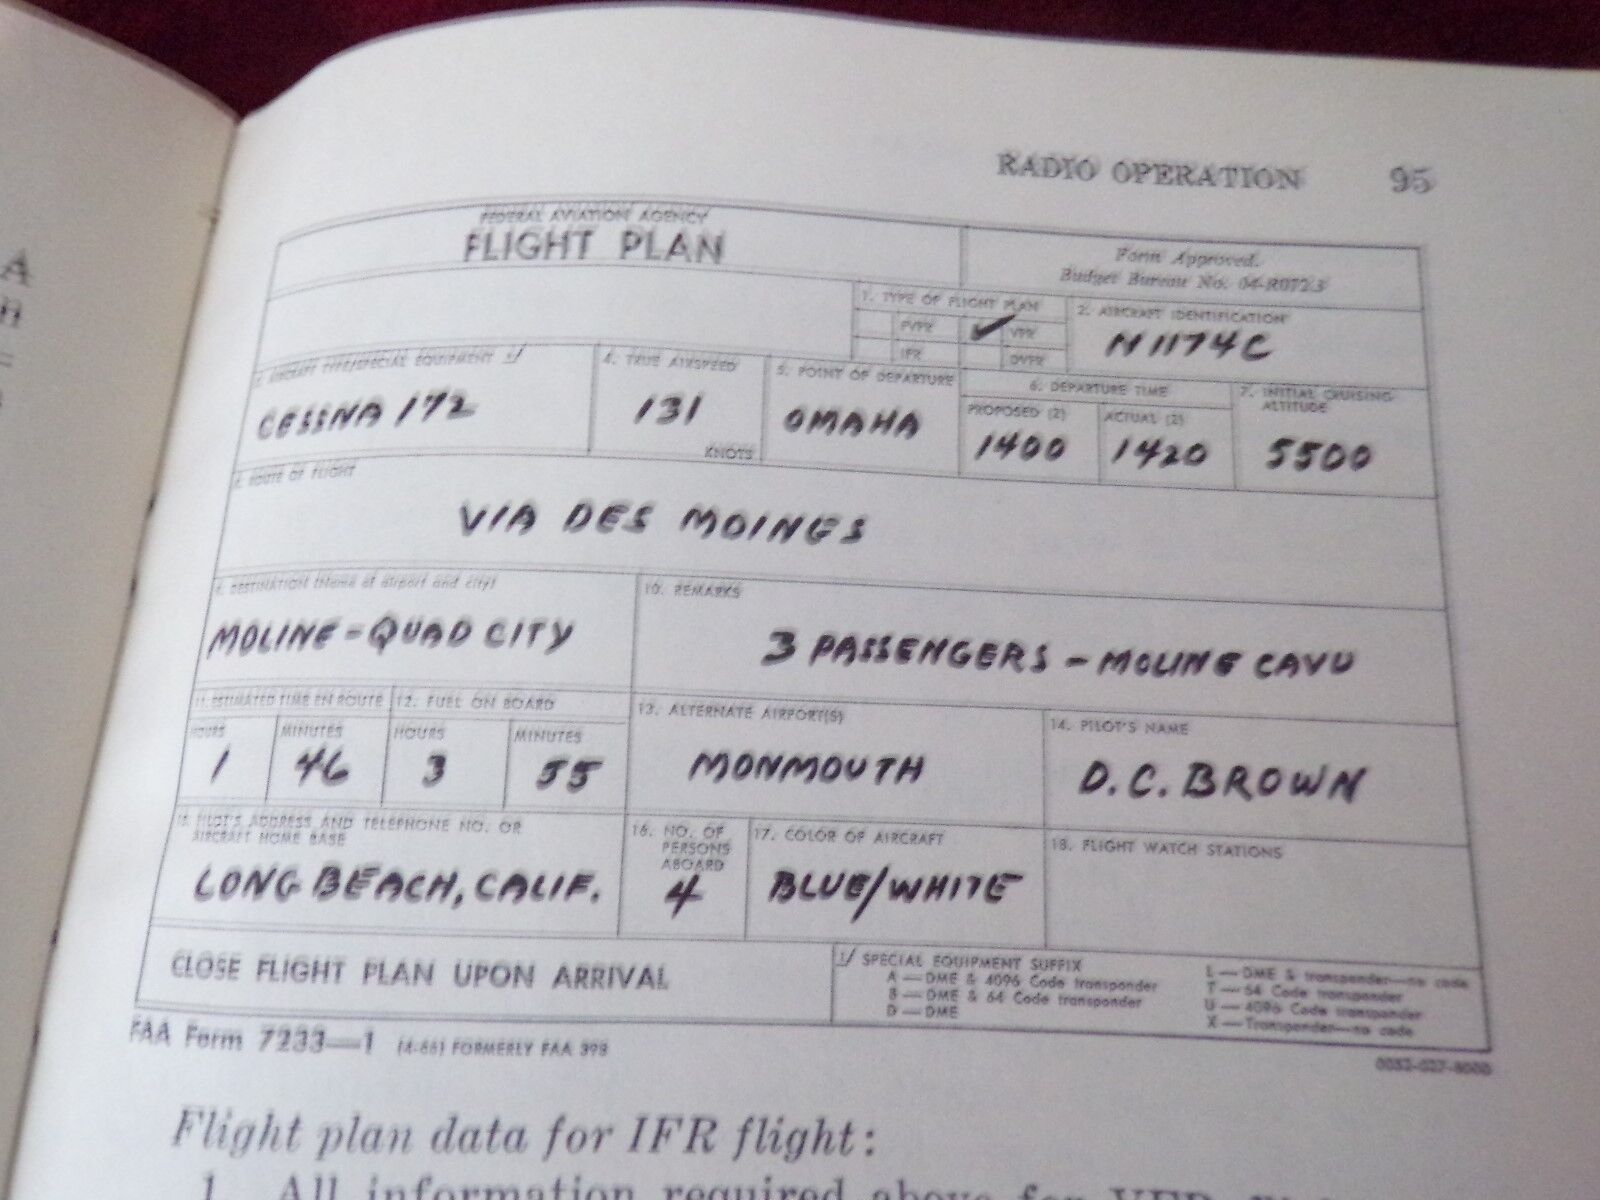 RADIO OPERATION 95
FEDERAL AVIATION AGENCY
FLIGHT PLAN
Form Approved.
Budget Bureau No. 04-R072.3
1. TYPE OF FLIGHT PLAN
FVFR ✓ VFR
IFR DVFR
2. AIRCRAFT IDENTIFICATION
N1174C
3. AIRCRAFT TYPE/SPECIAL EQUIPMENT 1/
CESSNA 172
4. TRUE AIRSPEED
131
KNOTS
5. POINT OF DEPARTURE
OMAHA
6. DEPARTURE TIME
PROPOSED (Z) ACTUAL (Z)
1400 1420
7. INITIAL CRUISING
ALTITUDE
5500
8. ROUTE OF FLIGHT
VIA DES MOINES
9. DESTINATION (Name of airport and city)
MOLINE-QUAD CITY
10. REMARKS
3 PASSENGERS - MOLINE CAVU
11. ESTIMATED TIME EN ROUTE
HOURS MINUTES
1 46
12. FUEL ON BOARD
HOURS MINUTES
3 55
13. ALTERNATE AIRPORT(S)
MONMOUTH
14. PILOT'S NAME
D.C. BROWN
15. PILOT'S ADDRESS AND TELEPHONE NO. OR
AIRCRAFT HOME BASE
LONG BEACH, CALIF.
16. NO. OF
PERSONS
ABOARD
4
17. COLOR OF AIRCRAFT
BLUE/WHITE
18. FLIGHT WATCH STATIONS
CLOSE FLIGHT PLAN UPON ARRIVAL
1/ SPECIAL EQUIPMENT SUFFIX
A—DME & 4096 Code transponder
B—DME & 64 Code transponder
D—DME
L—DME & transponder—no code
T—64 Code transponder
U—4096 Code transponder
X—Transponder—no code
FAA Form 7233—1 (4-66) FORMERLY FAA 398
0052-027-8000
Flight plan data for IFR flight:
1. All information required above for VFR